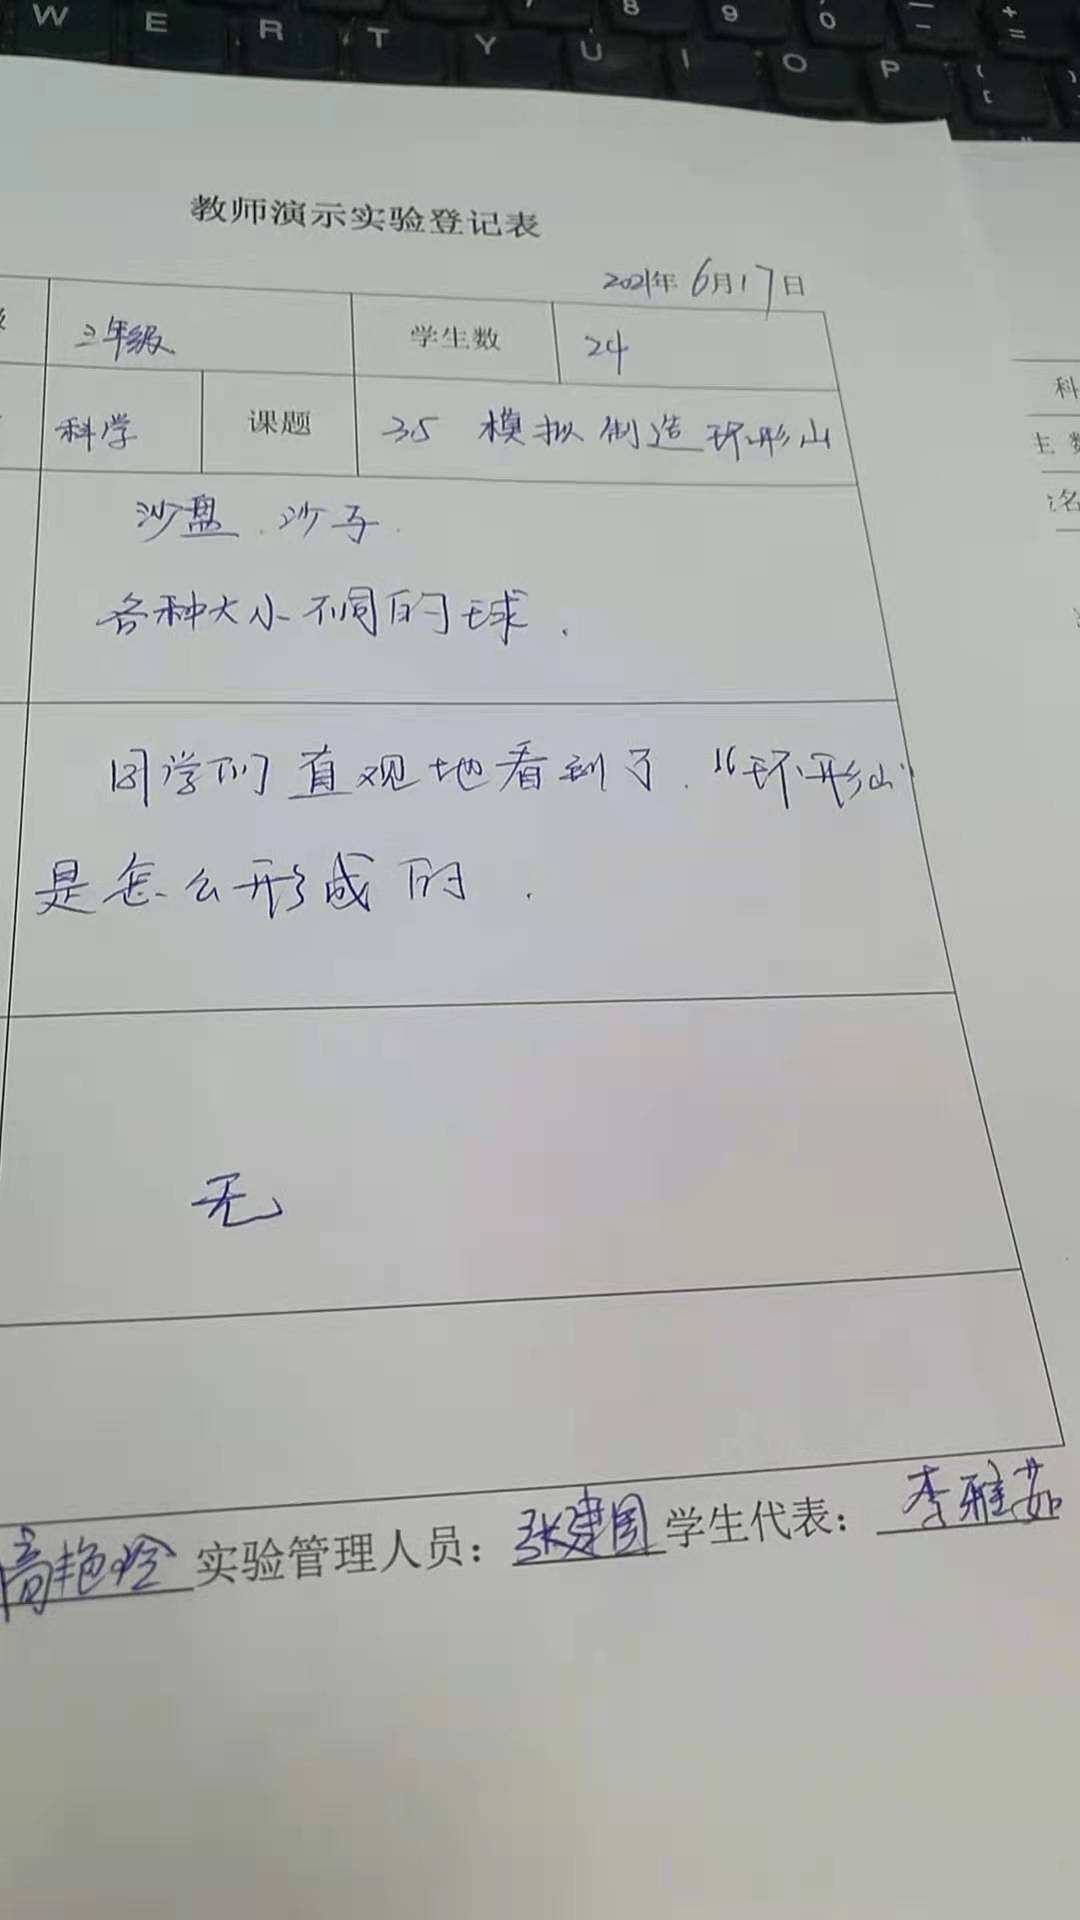 W E R T Y U I O P
8 9 0
教师演示实验登记表
2021年 6月17日
三年级 学生数 24
科学 课题 35 模拟制造环形山
沙盘、沙子.
各种大小不同的球.
同学们直观地看到了."环形山"
是怎么形成的.
无
高艳玲 实验管理人员：张建国 学生代表：李雅茹
科